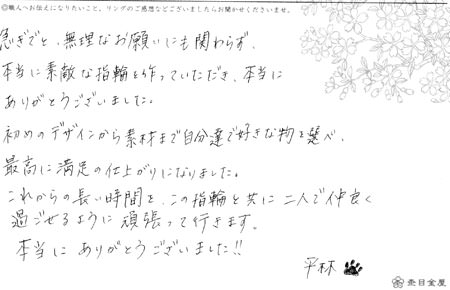 ◎職人へお伝えになりたいこと。リングのご感想などございましたらお聞かせくださいませ。
急ぎでと、無理なお願いにも関わらず、
本当に素敵な指輪を作っていただき、本当に
ありがとうございました。
初めのデザインから素材まで自分達で好きな物を選べ、
最高に満足の仕上がりになりました。
これからの長い時間を、この指輪と共に二人で仲良く
過ごせるように頑張って行きます。
本当にありがとうございました!!
平林
杢目金屋